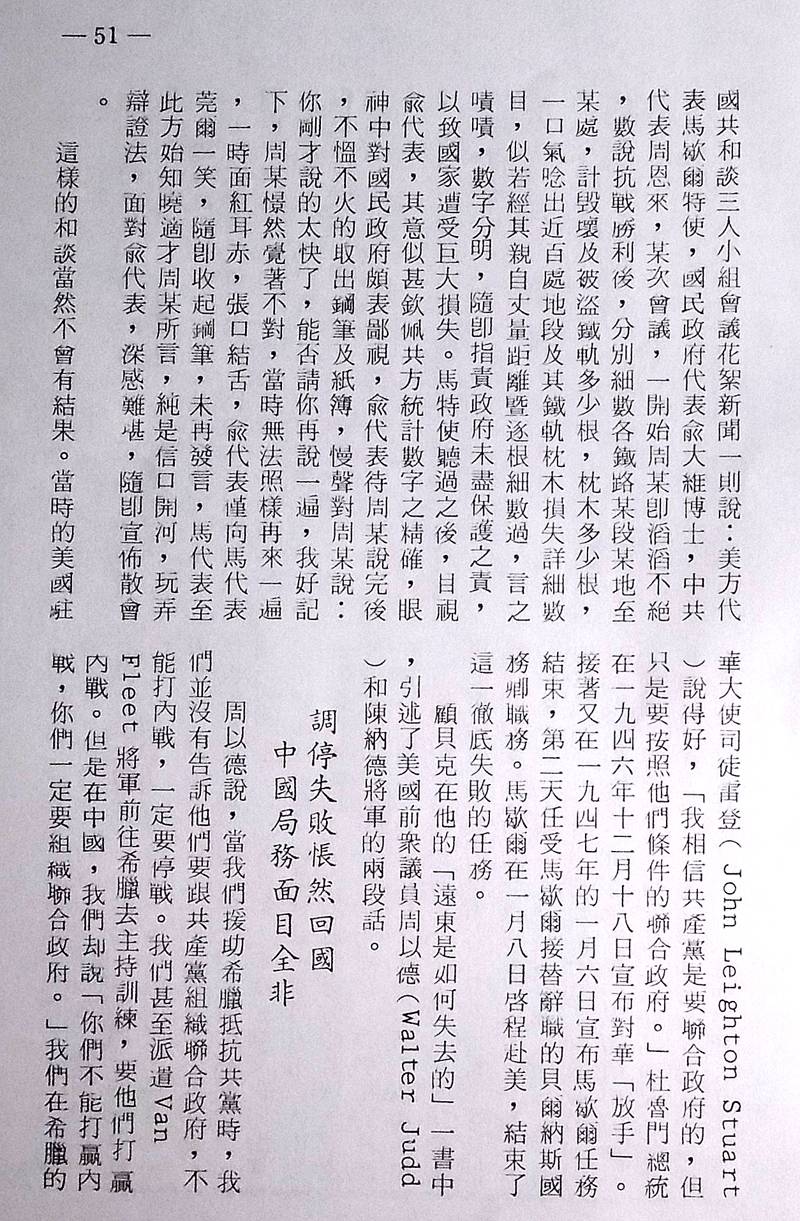 — 51 —
國共和談三人小組會議花絮新聞一則說：美方代
表馬歇爾特使，國民政府代表兪大維博士，中共
代表周恩來，某次會議，一開始周某卽滔滔不絕
，數說抗戰勝利後，分別細數各鐵路某段某地至
某處，計毀壞及被盜鐵軌多少根，枕木多少根，
一口氣唸出近百處地段及其鐵軌枕木損失詳細數
目，似若經其親自丈量距離暨逐根細數過，言之
嘖嘖，數字分明，隨卽指責政府未盡保護之責，
以致國家遭受巨大損失。馬特使聽過之後，目視
兪代表，其意似甚欽佩共方統計數字之精確，眼
神中對國民政府頗表鄙視，兪代表待周某說完後
，不慍不火的取出鋼筆及紙簿，慢聲對周某說：
你剛才說的太快了，能否請你再說一遍，我好記
下，周某憬然覺著不對，當時無法照樣再來一遍
，一時面紅耳赤，張口結舌，兪代表僅向馬代表
莞爾一笑，隨卽收起鋼筆，未再發言，馬代表至
此方始知曉適才周某所言，純是信口開河，玩弄
辯證法，面對兪代表，深感難堪，隨卽宣佈散會
。
這樣的和談當然不會有結果。當時的美國駐
華大使司徒雷登（John Leighton Stuart
）說得好，「我相信共產黨是要聯合政府的，但
只是要按照他們條件的聯合政府。」杜魯門總統
在一九四六年十二月十八日宣布對華「放手」。
接著又在一九四七年的一月六日宣布馬歇爾任務
結束，第二天任受馬歇爾接替辭職的貝爾納斯國
務卿職務。馬歇爾在一月八日啓程赴美，結束了
這一徹底失敗的任務。
顧貝克在他的「遠東是如何失去的」一書中
，引述了美國前衆議員周以德（Walter Judd
）和陳納德將軍的兩段話。
調停失敗悵然回國
中國局務面目全非
周以德說，當我們援助希臘抵抗共黨時，我
們並沒有告訴他們要跟共產黨組織聯合政府，不
能打內戰，一定要停戰。我們甚至派遣Van
Fleet 將軍前往希臘去主持訓練，要他們打贏
內戰。但是在中國，我們却說「你們不能打贏內
戰，你們一定要組織聯合政府。」我們在希臘的